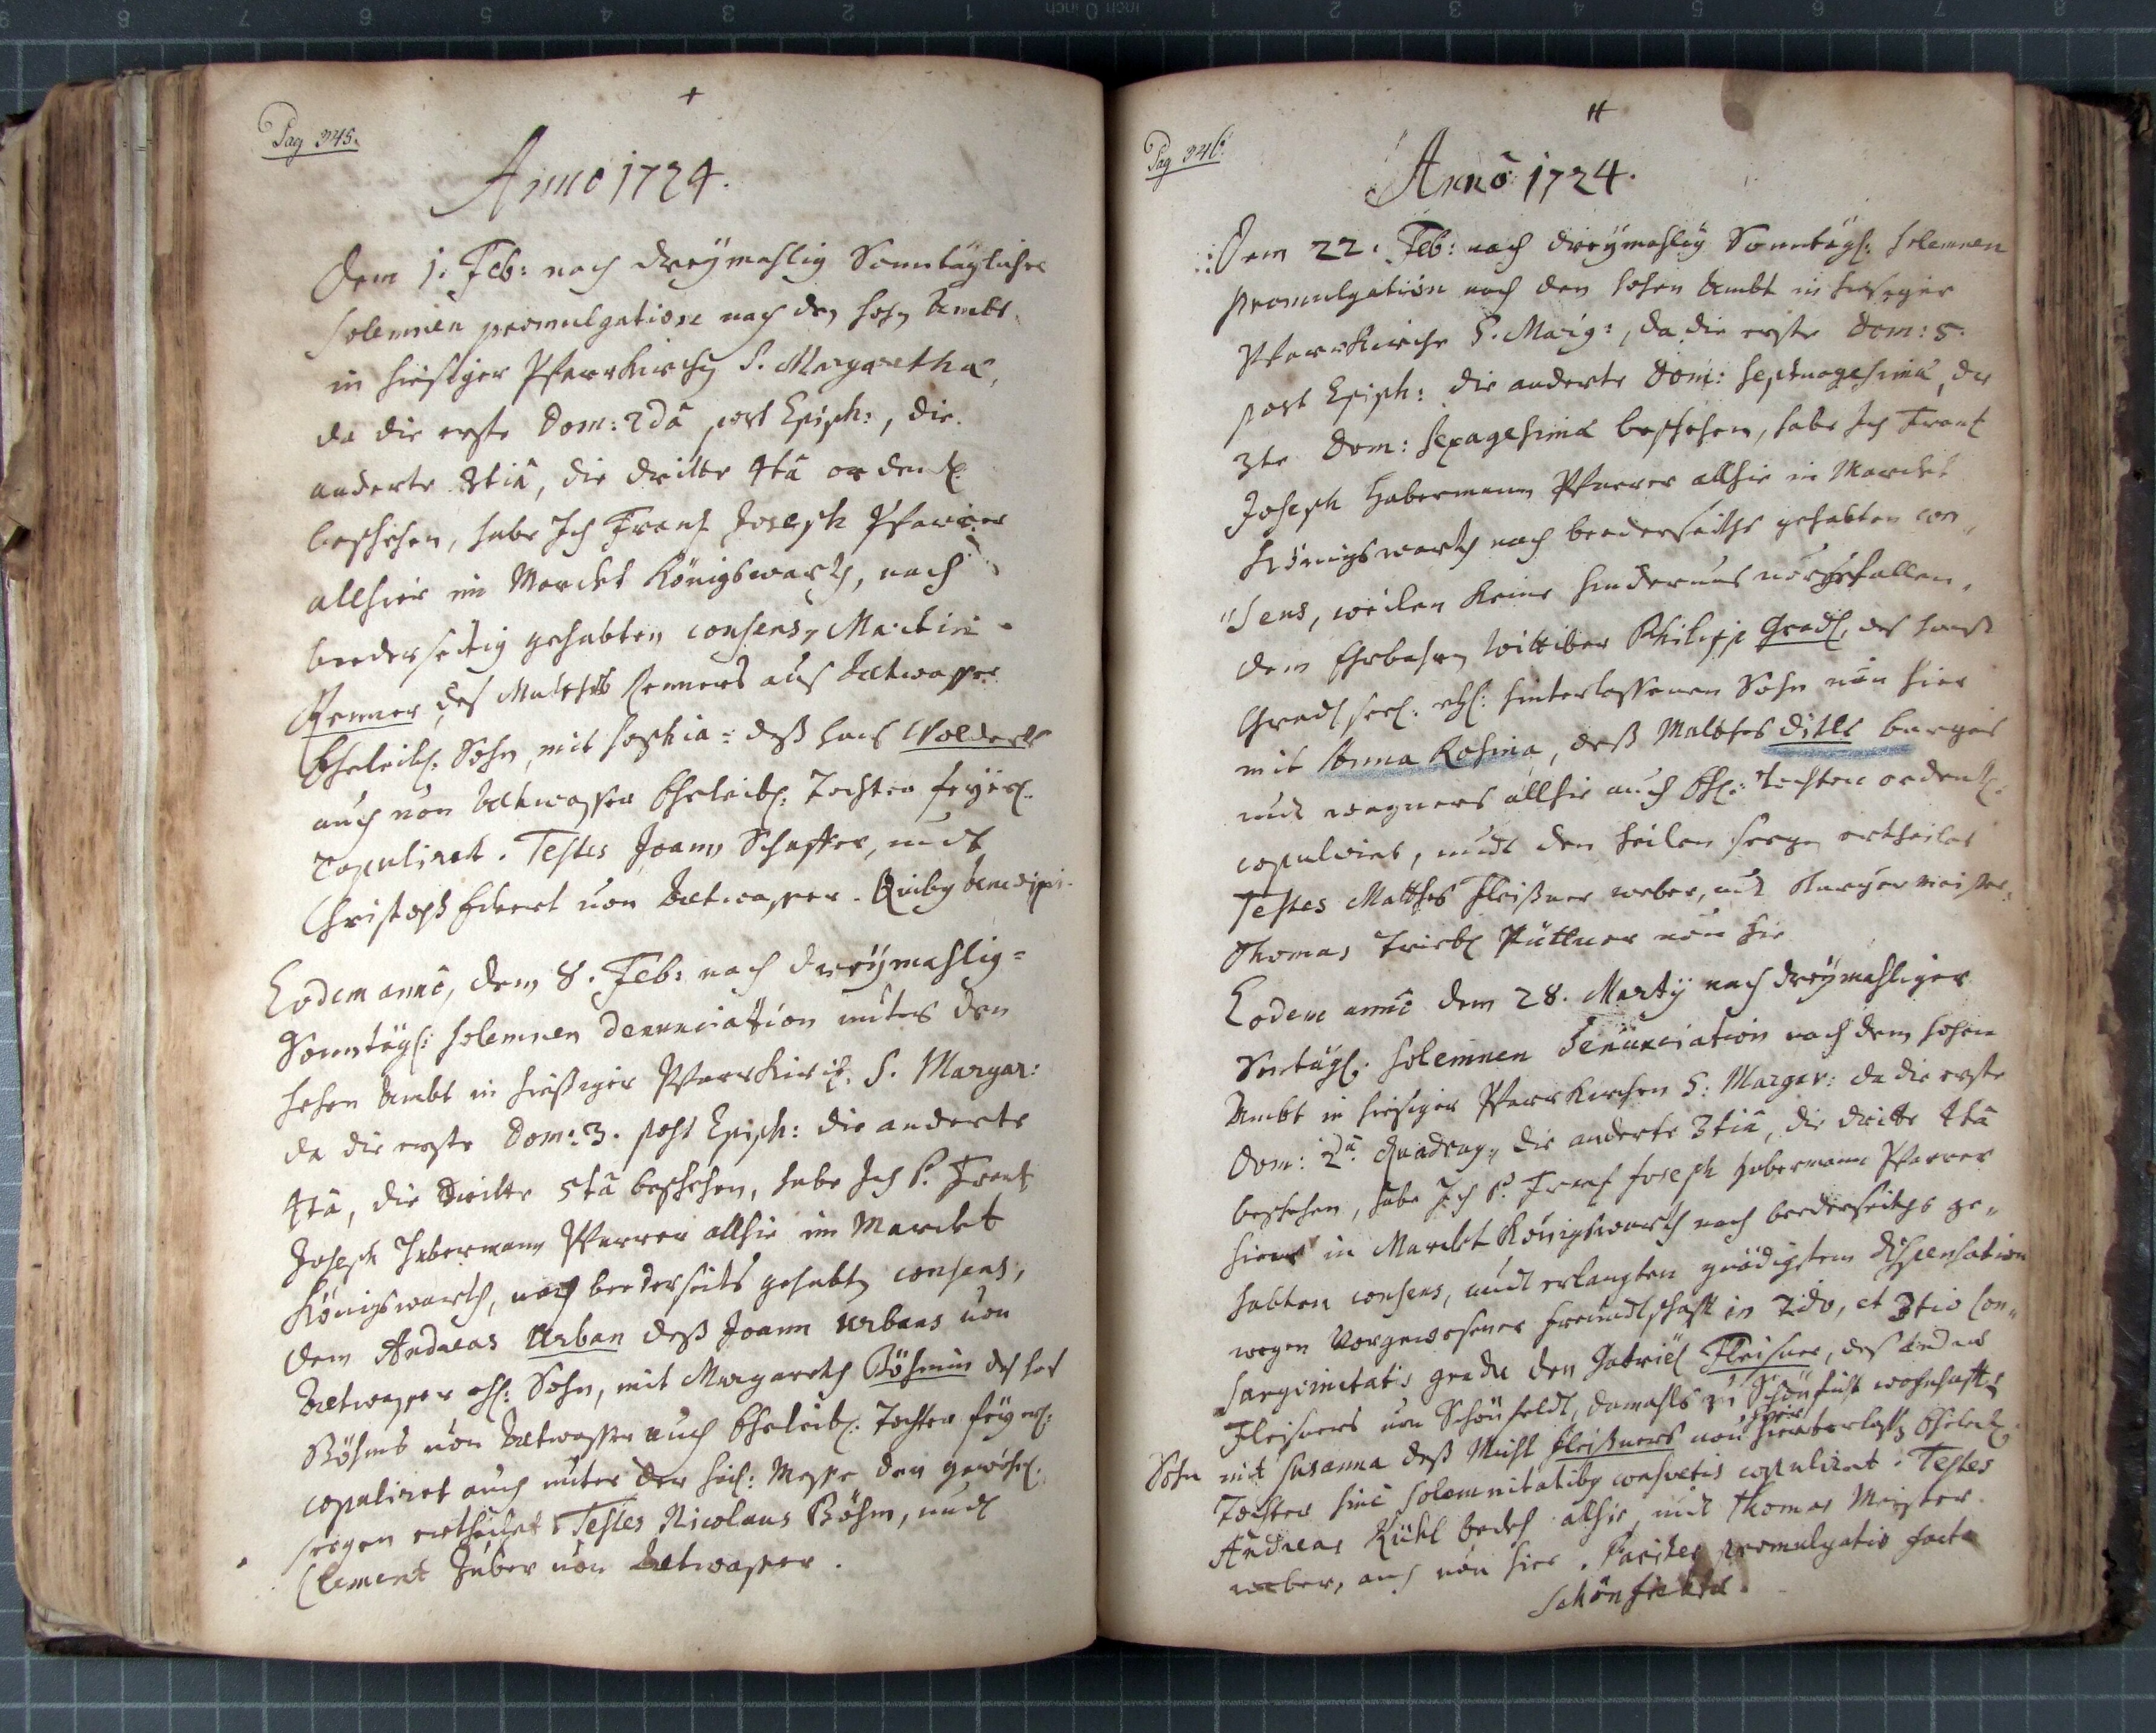 8 7 6 5 4 3 2 1 inch 0 inch 1 2 3 4 5 6 7 8
Pag 345.
Anno 1724.
Dem 1. Feb: nach dreÿmahlig Sonntägliche
solemnen promulgatione nach den hohen Ambt
in hiesiger Pfarrkirchen S. Margaretha,
da die erste Dom: 2dâ post Epiph:, die
anderte 3tiâ, die dritte 4tâ ordentl.
beschehen, habe Ich Frantz Joseph Pfarrer
allhier im Marckt Königswarth, nach
beederseitig gehabten consens, Martin
Renner des Matthes Renners aus
Eheleibl: Sohn, mit Sophia deß Hans
auch von Eheleibl: Tochter feyerl.
Copuliret. Testes Joann Schaffer, undt
Christoph von
Eodem annô, dem 8. Feb: nach dreÿmahlig
Sonntägl: solemnen denunciation unter den
hohen Ambt in hießiger Pfarrkirch. S. Margar:
da die erste Dom: 3. post Epiph: die anderte
4tâ, die dritte 5tâ beschehen, habe Ich P. Frantz
Joseph Habermann Pfarrer allhie im Marckt
Königswarth, nach beederseits gehabten consens,
dem Andreas Urban deß Joann Urbans von
ehl: Sohn, mit Margareth Böhmin des
Böhms von auch Eheleibl: Tochter feyerl:
copuliret auch unter der heil: Messe den gewöhnl:
seegen ertheilet. Testes Nicolaus Böhm, undt
Clement Huber von
Pag 346.
Annô 1724.
Dem 22. Feb: nach dreÿmahlig Sonntägl: solemnen
promulgation nach den hohen Ambt in hiesiger
Pfarrkirche S. Marg:, da die erste Dom: 5.
post Epiph: die anderte Dom: septuagesimâ, die
3te Dom: sexagesimâ beschehen, habe Ich Frantz
Joseph Habermann Pfarrer allhie in Marckt
Königswarth nach beederseiths gehabten con
sens, weilen keine hindernus vorgefallen,
dem Ehrbahren Wittiber Philipp Gradl, des Hanß
Gradl seel: ehl: hinterlassenen Sohn von hier
mit Anna Rosina, deß Matthes Dittls burgers
undt wagners allhie auch Ehl: Tochter ordentl.
copuliret, undt den heilen seegen ertheilet
Testes Matthes Fleißner weber, undt Burgermeister
Thomas Püttner von hie
Eodem annô dem 28. Martÿ nach dreÿmahliger
Sontägl: solemnen denunciation nach dem hohen
Ambt in hiesiger Pfarrkirchen S: Margar: da die erste
Dom: 2â quadrag:, die anderte 3tiâ, die dritte 4tâ
beschehen, habe Ich P. Frantz Joseph Habermann Pfarrer
hier in Marckt Königswarth nach beederseiths ge„
habten consens, undt erlangten gnädigsten dispensation
wegen Vorgewesener freundtschafft in 2do, et 3tio Con„
sanguinitatis gradu den Gabriel Fleisner, des Andreas
Fleisners von Schönfeldt, damahls zu wohnhafft
Sohn mit Susanna deß Michl Fleißners von hier hinterlaß. Eheleibl.
Tochter sinè solemnitatibq consuetis copuliret. Testes
Andreas beckh allhie, undt Thomas Meister
weber, auch von hier. Pariter promulgatio facta
Schönfeldae.